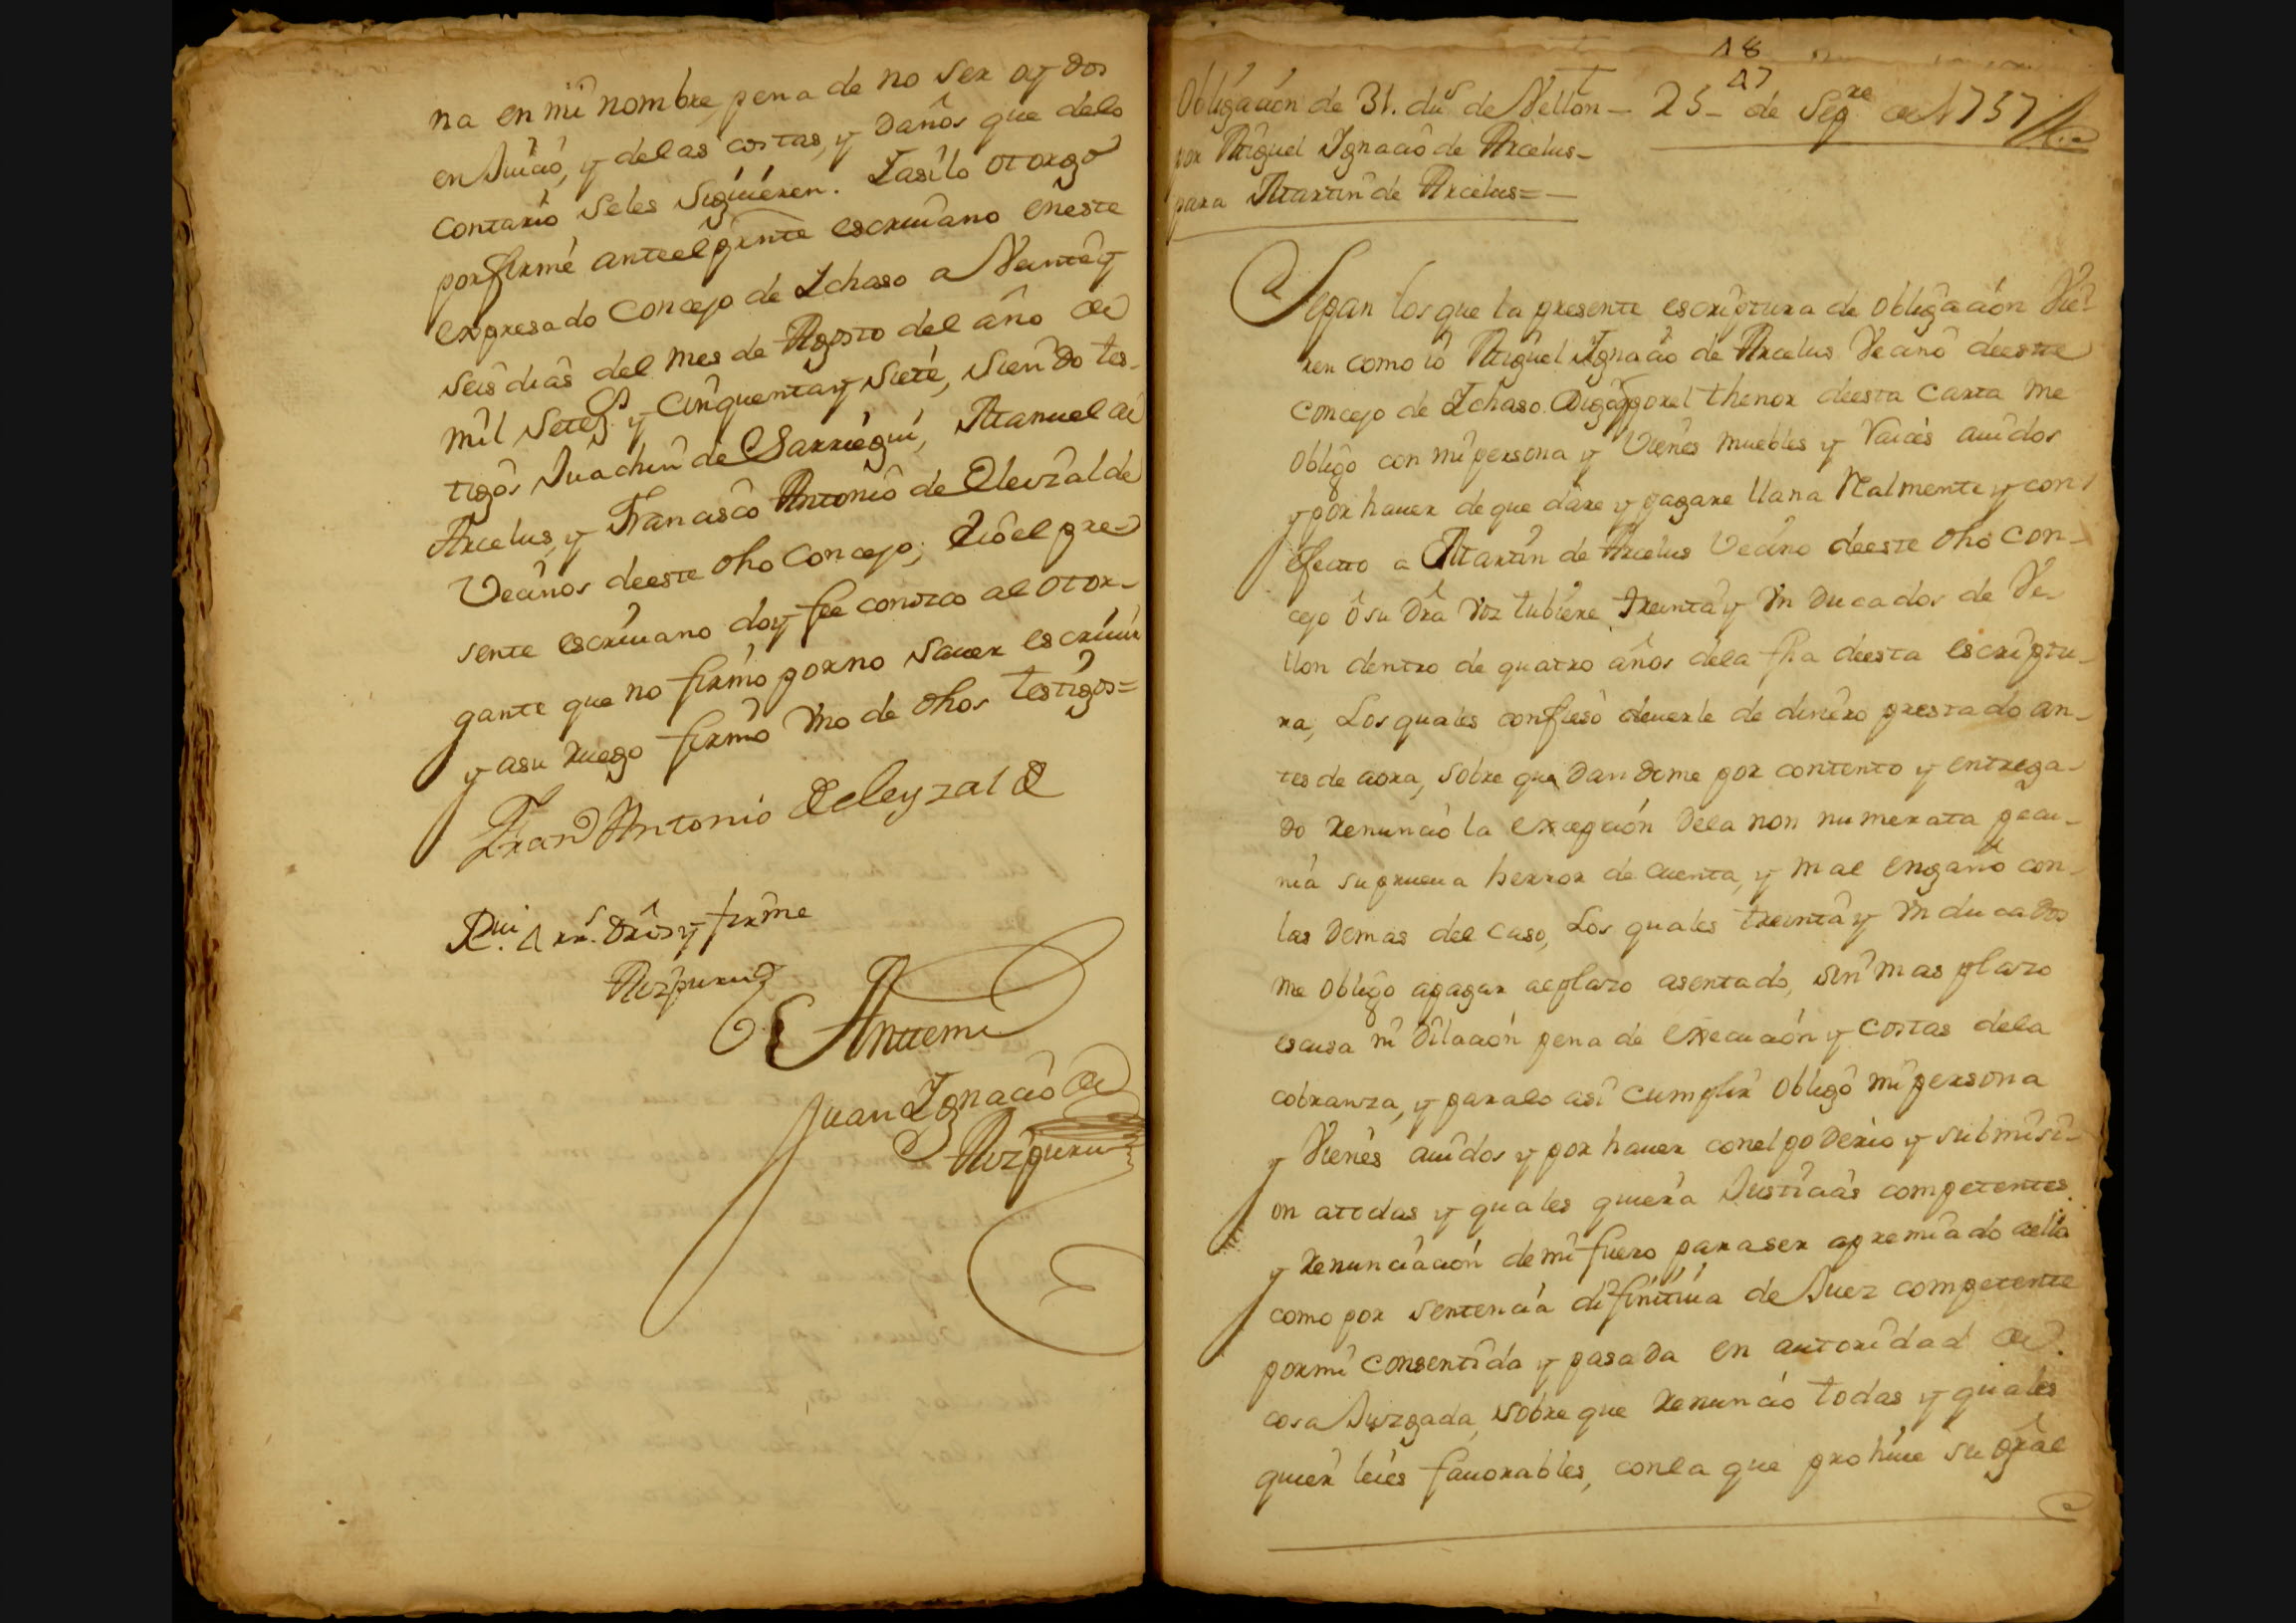 na en mi nombre, pena de no ser oydos
en Juicio, y de las costas, y daños que delo
contario seles siguieren. Y asilo otorgo
por firme ante el presnte escriuano en este
expresado Concejo de Ichaso a Veinte y
seis dias del mes de Agosto del año de
mil setezs. y cinquenta y siete, siendo tes-
tigos Juachin de Sarriegui, Manuel de
Arcelus, y Francisco Antonio de Eleizalde
Vecinos deeste dho Concejo; e io el pre-
sente escriuano doy fee conozco al otor-
gante que no firmo por no sauer escriuir
y asu ruego firmo Vno de dhos testigos=
Frano Antonio de eleyzalde
Rui. 1 rrs. Drôs y firme
Aizpuru
Anttemi
Juan Ignacio de
Aizpuru
18
17
Obligacion de 31. dus de Vellon — 25 - de Sepre de 1757
por Miguel Ignacio de Arcelus-
para Martin de Arcelus=—
Sepan los que la presente escriptura de obligacion Vie-
ren como io Miguel Ignacio de Arcelus Vecino deeste
concejo de Ichaso Digo q por el thenor deesta Carta me
obligo con mi persona y Vienes muebles y Raices auidos
y por hauer de que dare y pagare llana Realmente y con
efecto a Martin de Arcelus Vecino deeste dho Con-
cejo o su Dra Voz tubiere, treinta y Vn Ducados de Ve-
llon dentro de quatro años dela fha deesta escriptu-
ra, Los quales confieso deuerle de dinero prestado an-
tes de aora, sobre que dandome por contento y entrega-
do renuncio la excepcion dela non numerata pecu-
nia su prueua herror de cuenta, y mal engaño con-
las demas del caso, Los quales treinta y Vn ducados
me obligo apagar al plazo asentado, sin mas plazo
escusa ni Dilacion pena de execucion y costas dela
cobranza, y para lo asi cumplir obligo mi persona
y Vienes auidos y por hauer con el poderio y submisi-
on atodas y quales quiera Justicias competentes
y renunciacion de mi fuero para ser apremiado aello
como por sentencia difinitiua de Juez competente
por mi consentida y pasada en autoridad de
cosa Juzgada, sobre que renuncio todas y quales
quier leies fauorables, con la que prohiue su gral